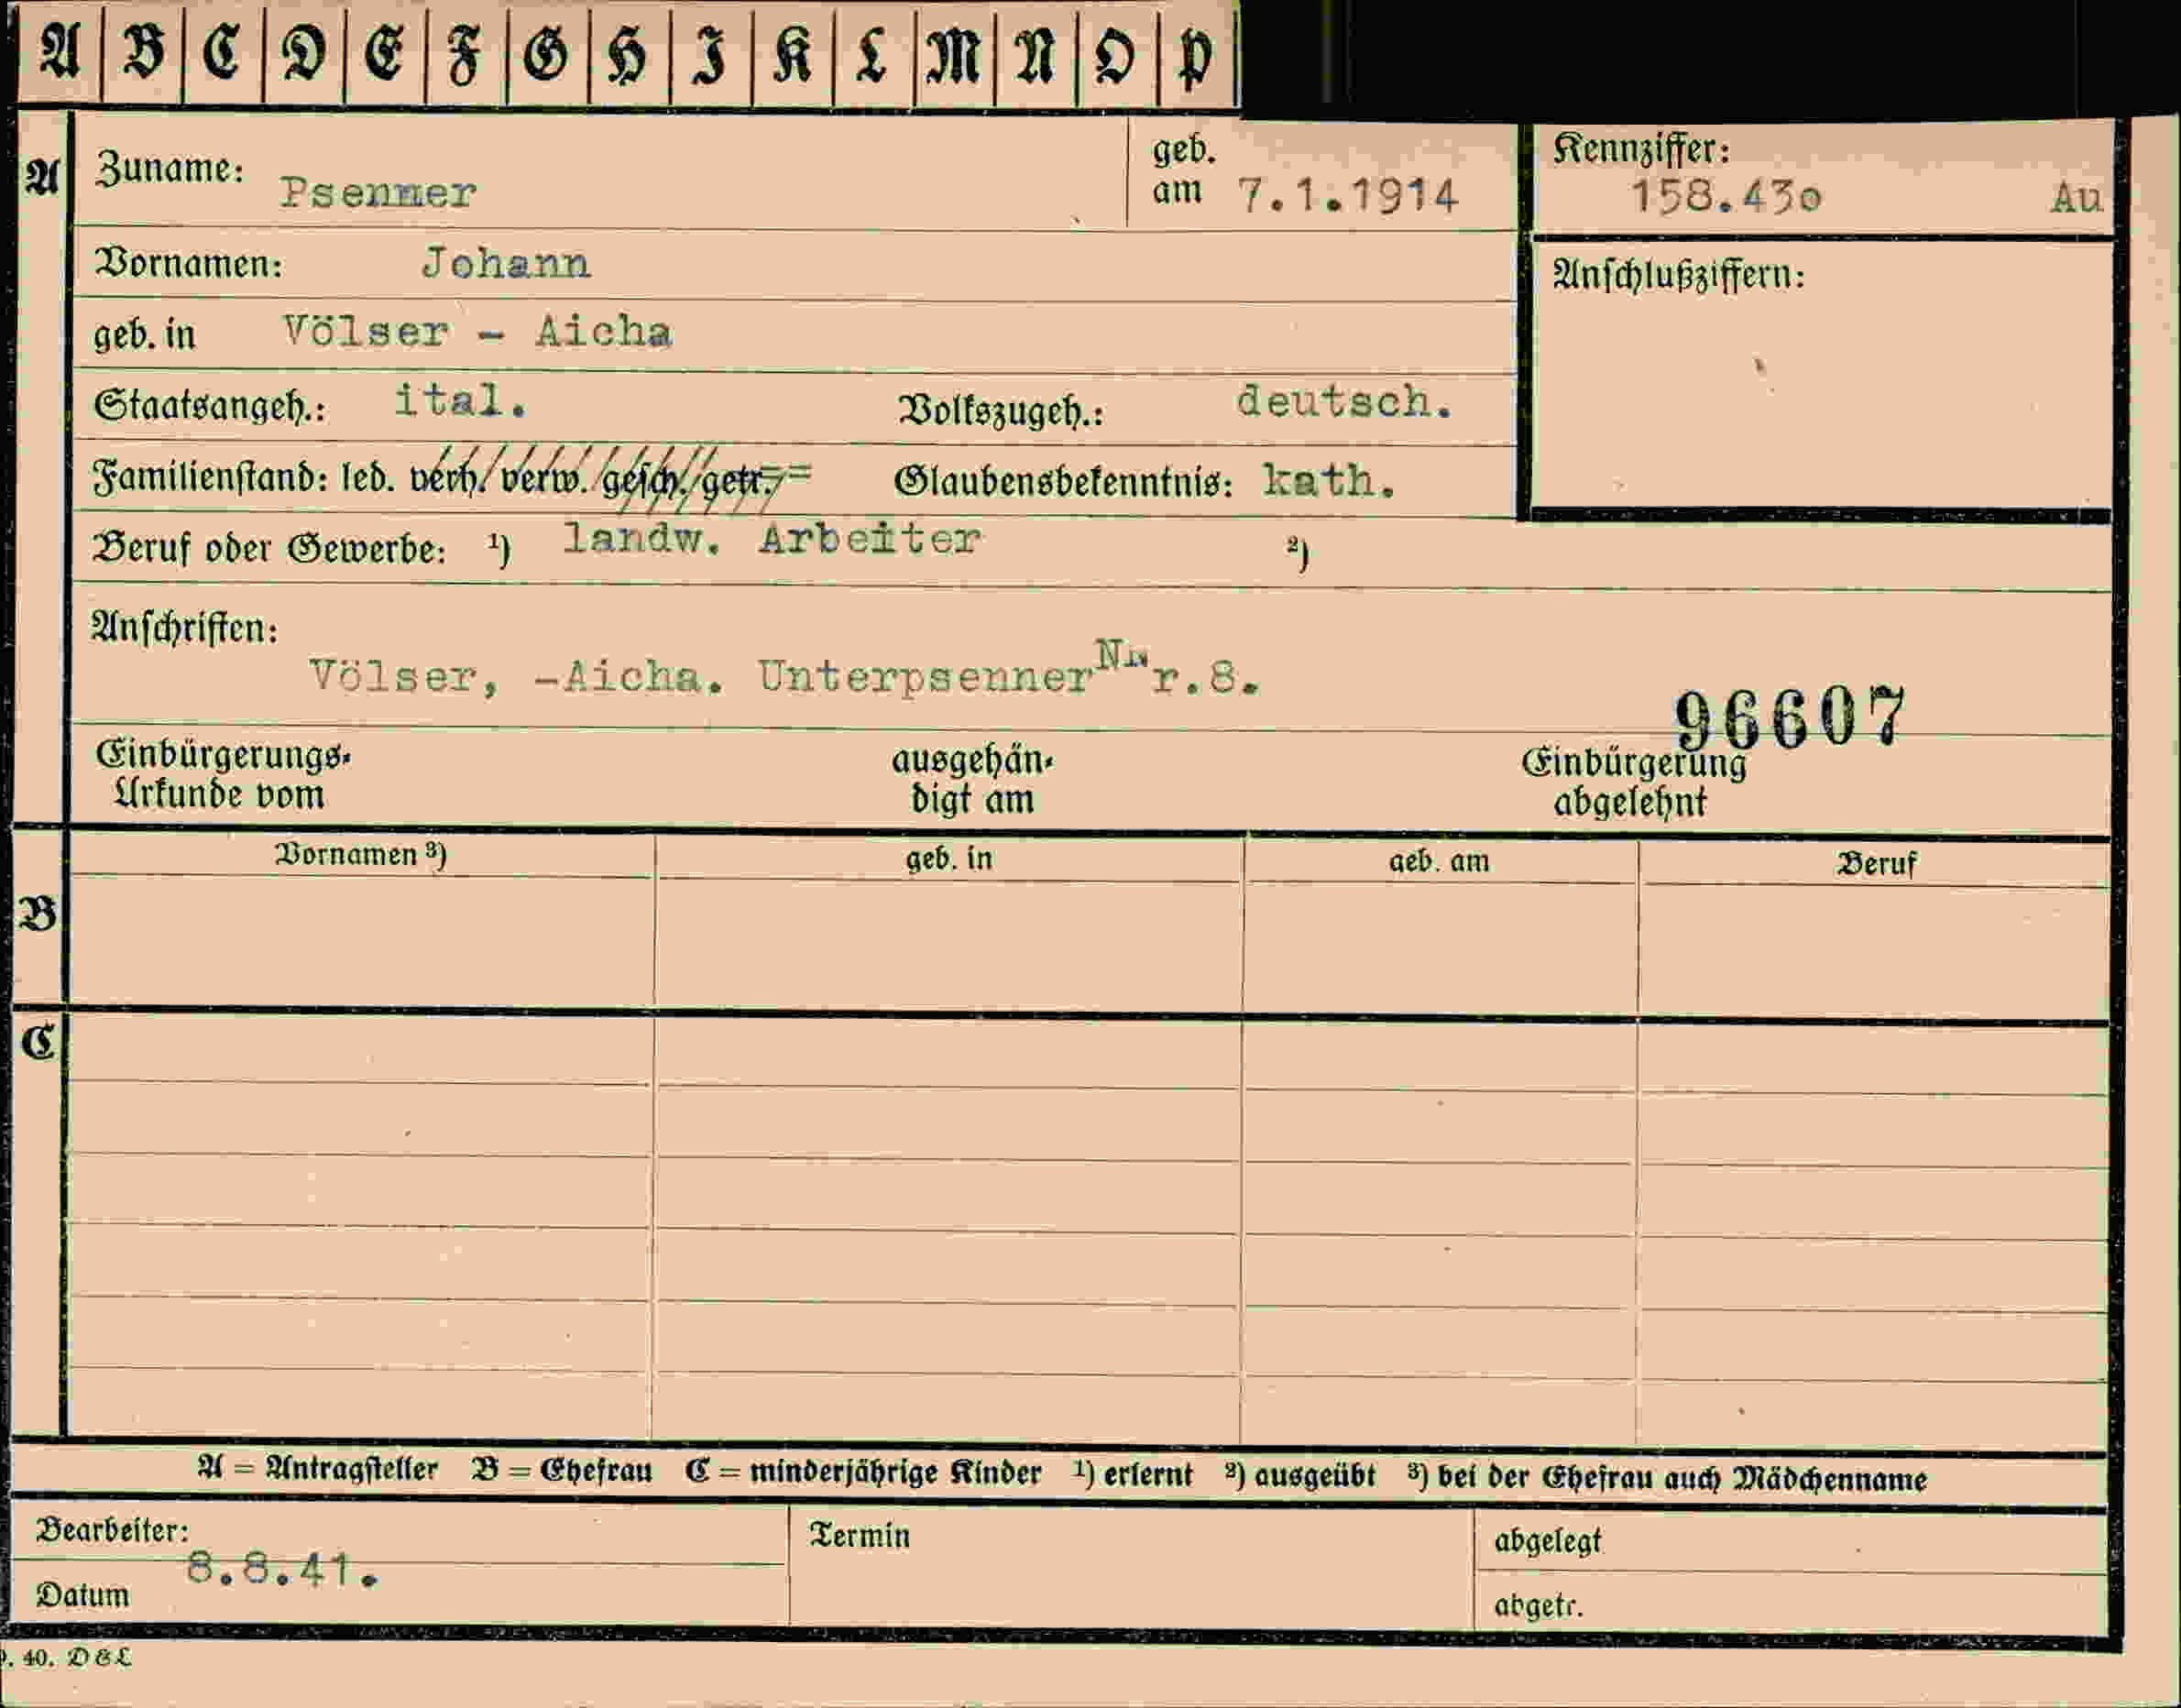 A B C D E F G H I K L M N O P
A Zuname: Psenner geb. am 7.1.1914 Kennziffer: 158.43o Au
Vornamen: Johann Anschlußziffern:
geb. in Völser - Aicha
Staatsangeh.: ital. Volkszugeh.: deutsch.
Familienstand: led. verh. verw. gesch. getr. Glaubensbekenntnis: kath.
Beruf oder Gewerbe: 1) landw. Arbeiter 2)
Anschriften:
Völser, -Aicha. Unterpsenner Nr.8.
96607
Einbürgerungs- ausgehän- Einbürgerung
Urkunde vom digt am abgelehnt
Vornamen 3) geb. in geb. am Beruf
B
C
A = Antragsteller B = Ehefrau C = minderjährige Kinder 1) erlernt 2) ausgeübt 3) bei der Ehefrau auch Mädchenname
Bearbeiter: Termin abgelegt
8.8.41.
Datum abgetr.
. 40. D&L